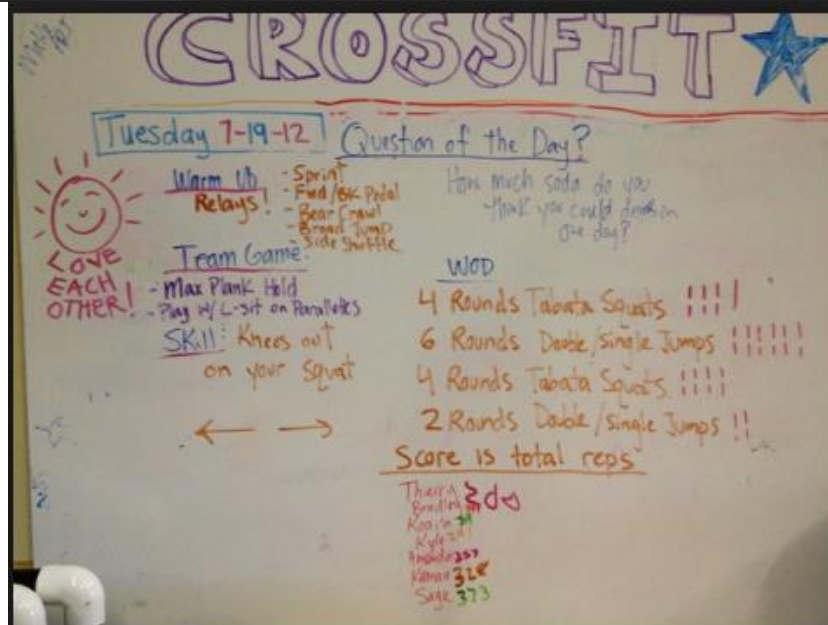 CROSSFIT
Tuesday 7-19-12
Question of the Day?
How much soda do you
think you could drink in
one day?
Warm Up
Relays!
- Sprint
- Fwd/BK Pedal
- Bear Crawl
- Broad Jump
Side Shuffle
LOVE
EACH
OTHER!
Team Game:
- Max Plank Hold
- Play w/ L-sit on Parallettes
Skill: Knees out
on your Squat
WOD
4 Rounds Tabata Squats
6 Rounds Double/single Jumps
4 Rounds Tabata Squats
2 Rounds Double/single Jumps
Score is total reps
Thierry
Bradley
Kyle
Amanda 257
Sage 373